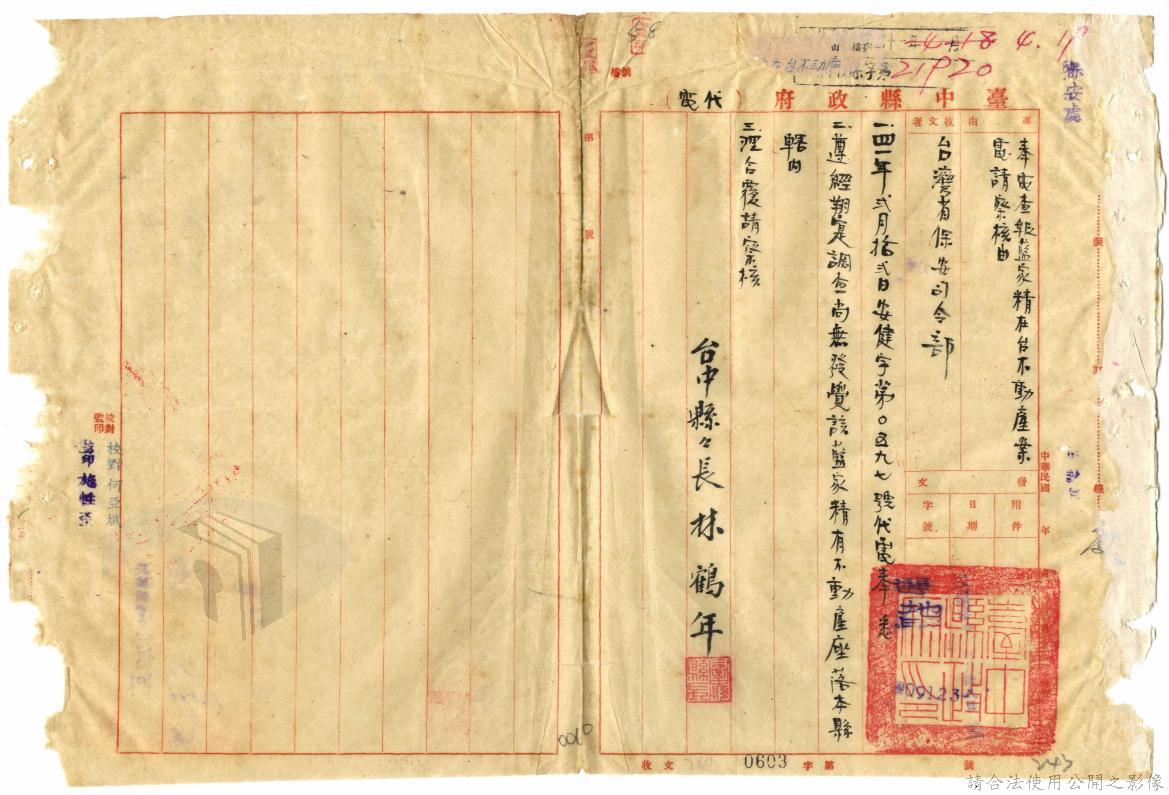 臺中縣政府（代電）
事由
奉電查報藍家精在台不動產案
電請察核由
受文者
台灣省保安司令部
發文
附件
日期
字號
中華民國 年
一、四一年弍月拾弍日安健字第〇五九七號代電奉悉
二、遵經翔實調查尚無發覺該藍家精有不動產座落本縣
轄內
三、理合覆請察核
台中縣々長林鶴年
保安處
4.18
21920
裝
訂
線
第 號
校對
監印
校對 何亞斌
收文 字第 0603 號
09123
243
請合法使用公開之影像